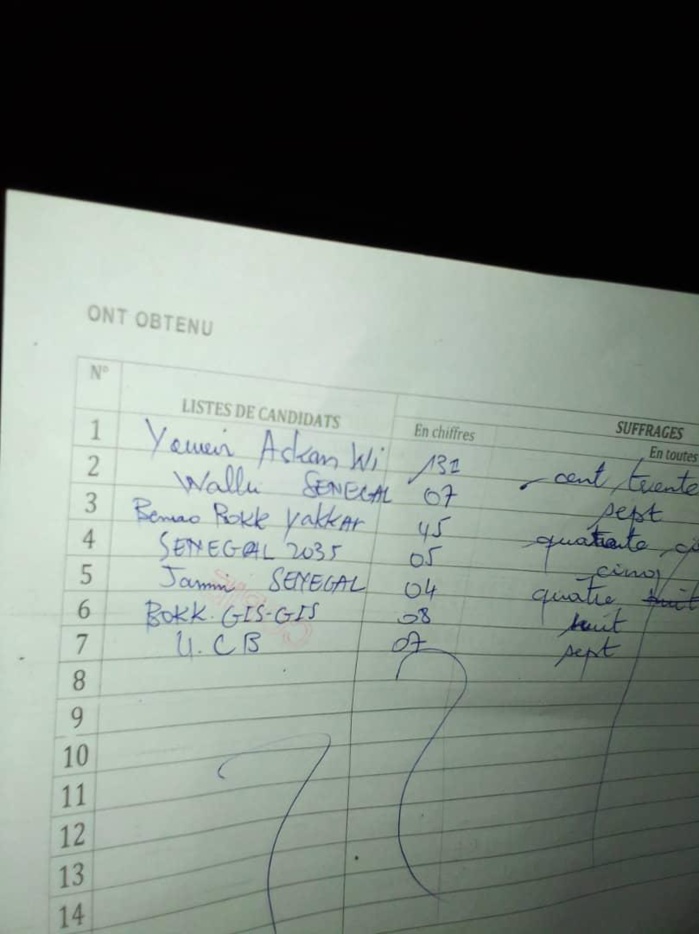 ONT OBTENU
N° LISTES DE CANDIDATS SUFFRAGES
En chiffres En toutes
1 Yewwi Askan Wi 131 cent trente
2 Wallu SENEGAL 07 sept
3 Benno Bokk Yakkar 45 quarante
4 SENEGAL 2035 05 cinq
5 Jammi SENEGAL 04 quatre
6 BOKK GIS-GIS 08 huit
7 U.CB 07 sept
8
9
10
11
12
13
14